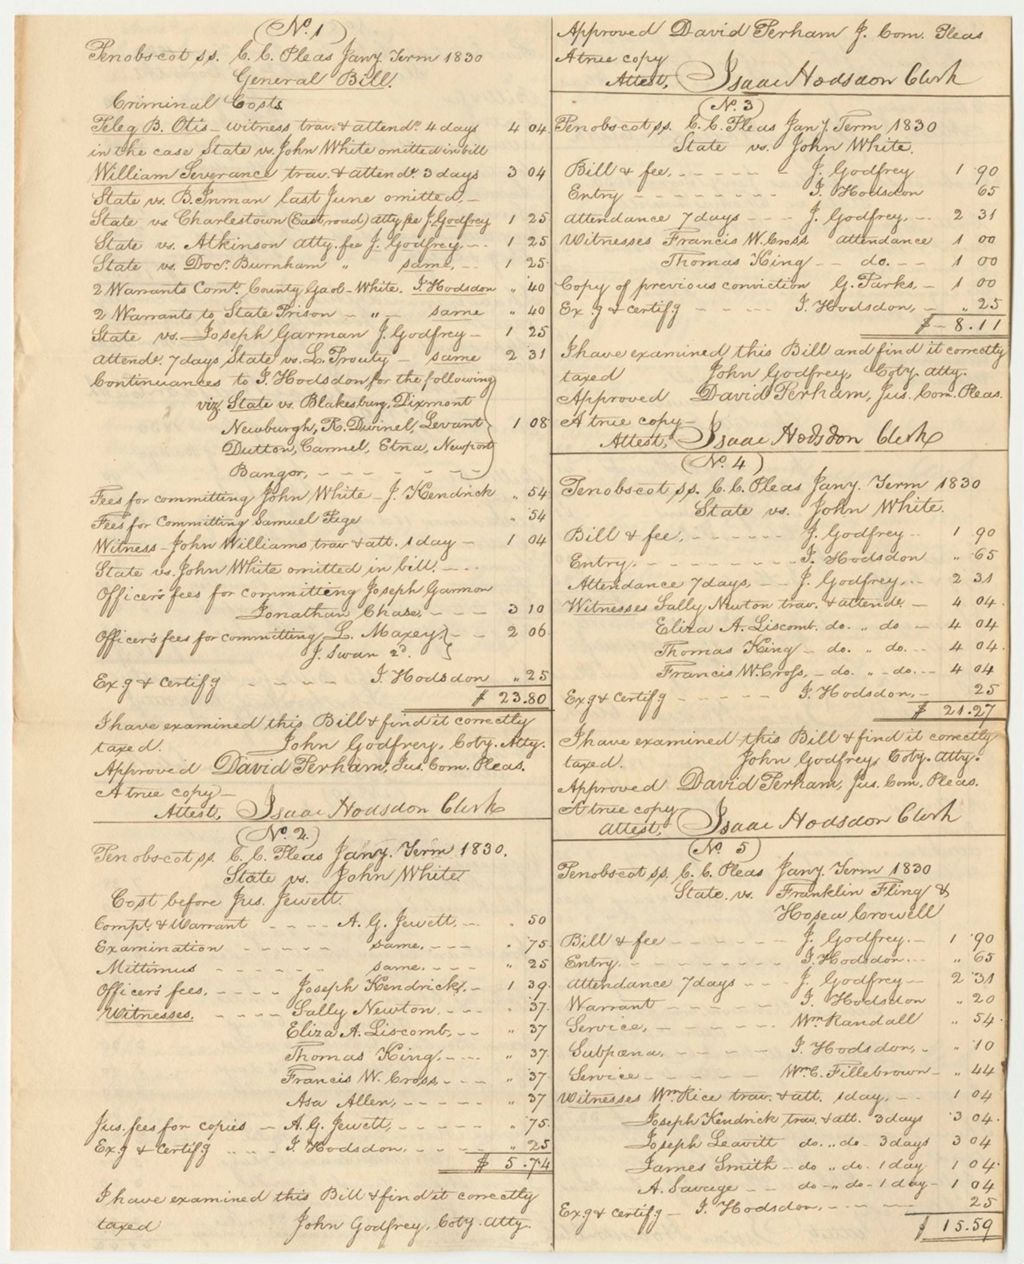 (No. 1)
Penobscot ss. C. C. Pleas Jany. Term 1830
General Bill.
Criminal Costs.
Peleg B. Otis - witness trav. & attendce. 4 days 4 04
in the case State vs. John White omitted in bill
William Severance trav. & attendce. 3 days 3 04
State vs. B. Inman last June omitted. -
State vs Charlestown (East road) atty fee J. Godfrey 1 25
State vs. Atkinson atty. fee J. Godfrey - 1 25
State vs. Doc. Burnham " same. - 1 25
2 Warrants Comt. County Gaol - White. I. Hodsdon " 40
2 Warrants to State Prison - " - same " 40
State vs. Joseph Garman J. Godfrey - 1 25
attendce. 7 days State vs. L. Prouty - same 2 31
Continuances to I. Hodsdon for the following
viz. State vs. Blakesburg, Dixmont
Newburgh, R. Dwinel, Levant 1 08
Dutton, Carmel, Etna, Newport
Bangor, - - - - -
Fees for committing John White - J. Kendrick " 54
Fees for committing Samuel Page " 54
Witness - John Williams trav & att. 1 day - 1 04
State vs. John White omitted in bill. - - -
Officer's fees for committing Joseph Garmon
Jonathan Chase. - - - - 3 10
Officer's fees for committing L. Maxey } - - 2 06
J. Swan 2d. }
Exg & certifg - - - - I. Hodsdon " 25
$ 23.80
I have examined this Bill & find it correctly
taxed. John Godfrey, Coty. Atty.
Approved David Perham, Jus. Com. Pleas.
A true copy -
Attest, Isaac Hodsdon Clerk
(No. 2.)
Penobscot ss. C. C. Pleas Jany. Term 1830.
State vs. John White.
Cost before Jus. Jewett.
Compt. & Warrant - - - - A. G. Jewett. - - . 50
Examination - - - - - same. - - - " 75
Mittimus - - - - - - same. - - - - " 25
Officer's fees. - - - - Joseph Kendrick. - 1 39
Witnesses. - - - - Sally Newton. " 37
Eliza A. Liscomb. - - " 37
Thomas King. - - - " 37
Francis W. Cross. - - - " 37
Asa Allen, - - - - - " 37
Jus. fees for copies - A. G. Jewett, - - - - " 75
Exg & Certifg - - - - I. Hodsdon. - - - - " 25
$ 5.74
I have examined this Bill & find it correctly
taxed John Godfrey, Coty. Atty.
Approved David Perham J. Com. Pleas
A true copy
Attest, Isaac Hodsdon Clerk
(No. 3)
Penobscot ss. C. C. Pleas Jany. Term 1830
State vs. John White.
Bill & fee. - - - - - - J. Godfrey 1 90
Entry - - - - - - - I. Hodsdon 65
attendance 7 days - - - J. Godfrey. - - 2 31
Witnesses Francis W. Cross attendance 1 00
Thomas King - - do. - - - 1 00
Copy of previous conviction G. Parks. - 1 00
Exg & certifg - - - - - I. Hodsdon, - " 25
$ - 8.11
I have examined this Bill and find it correctly
taxed John Godfrey, Coty. atty.
Approved David Perham, Jus. Com. Pleas.
A true copy -
Attest, Isaac Hodsdon Clerk
(No. 4)
Penobscot ss. C. C. Pleas Jany. Term 1830
State vs. John White.
Bill & fee. - - - - - - J. Godfrey - - 1 90
Entry. - - - - - - - - I. Hodsdon " 65
Attendance 7 days, - - J. Godfrey. - - 2 31
Witnesses Sally Newton trav. & attendce. - 4 04
Eliza A. Liscomb. do. " do - 4 04
Thomas King - do. " do. - - 4 04
Francis W. Cross, - do. " do. - - 4 04
Exg & certifg - - - - - I. Hodsdon, - 25
$ 21.27
I have examined this Bill & find it correctly
taxed. John Godfrey Coty. atty.
Approved David Perham, Jus. Com. Pleas.
A true copy
attest, Isaac Hodsdon Clerk
(No. 5)
Penobscot ss. C. C. Pleas Jany. Term 1830
State. vs. Franklin Fling &
Hosea Crowell
Bill & fee - - - - - - J. Godfrey. - - 1 90
Entry. - - - - - - - I. Hodsdon. - - " 65
attendance 7 days - - - J. Godfrey - - 2 31
Warrant - - - - - - I. Hodsdon " 20
Service, - - - - - - Wm. Randall " 54
Subpœna, - - - - - I. Hodsdon, - " 10
Service - - - - - - Wm. C. Fillebrown - " 44
Witnesses Wm. Rice trav. & att. 1 day. - - 1 04
Joseph Kendrick trav & att. 3 days 3 04
Joseph Leavitt do. " do - 3 days 3 04
James Smith - do " do - 1 day 1 04
A. Savage - - do - " do - 1 day - 1 04
Exg & certifg - I. Hodsdon, - - - - - 25
$ 15.59